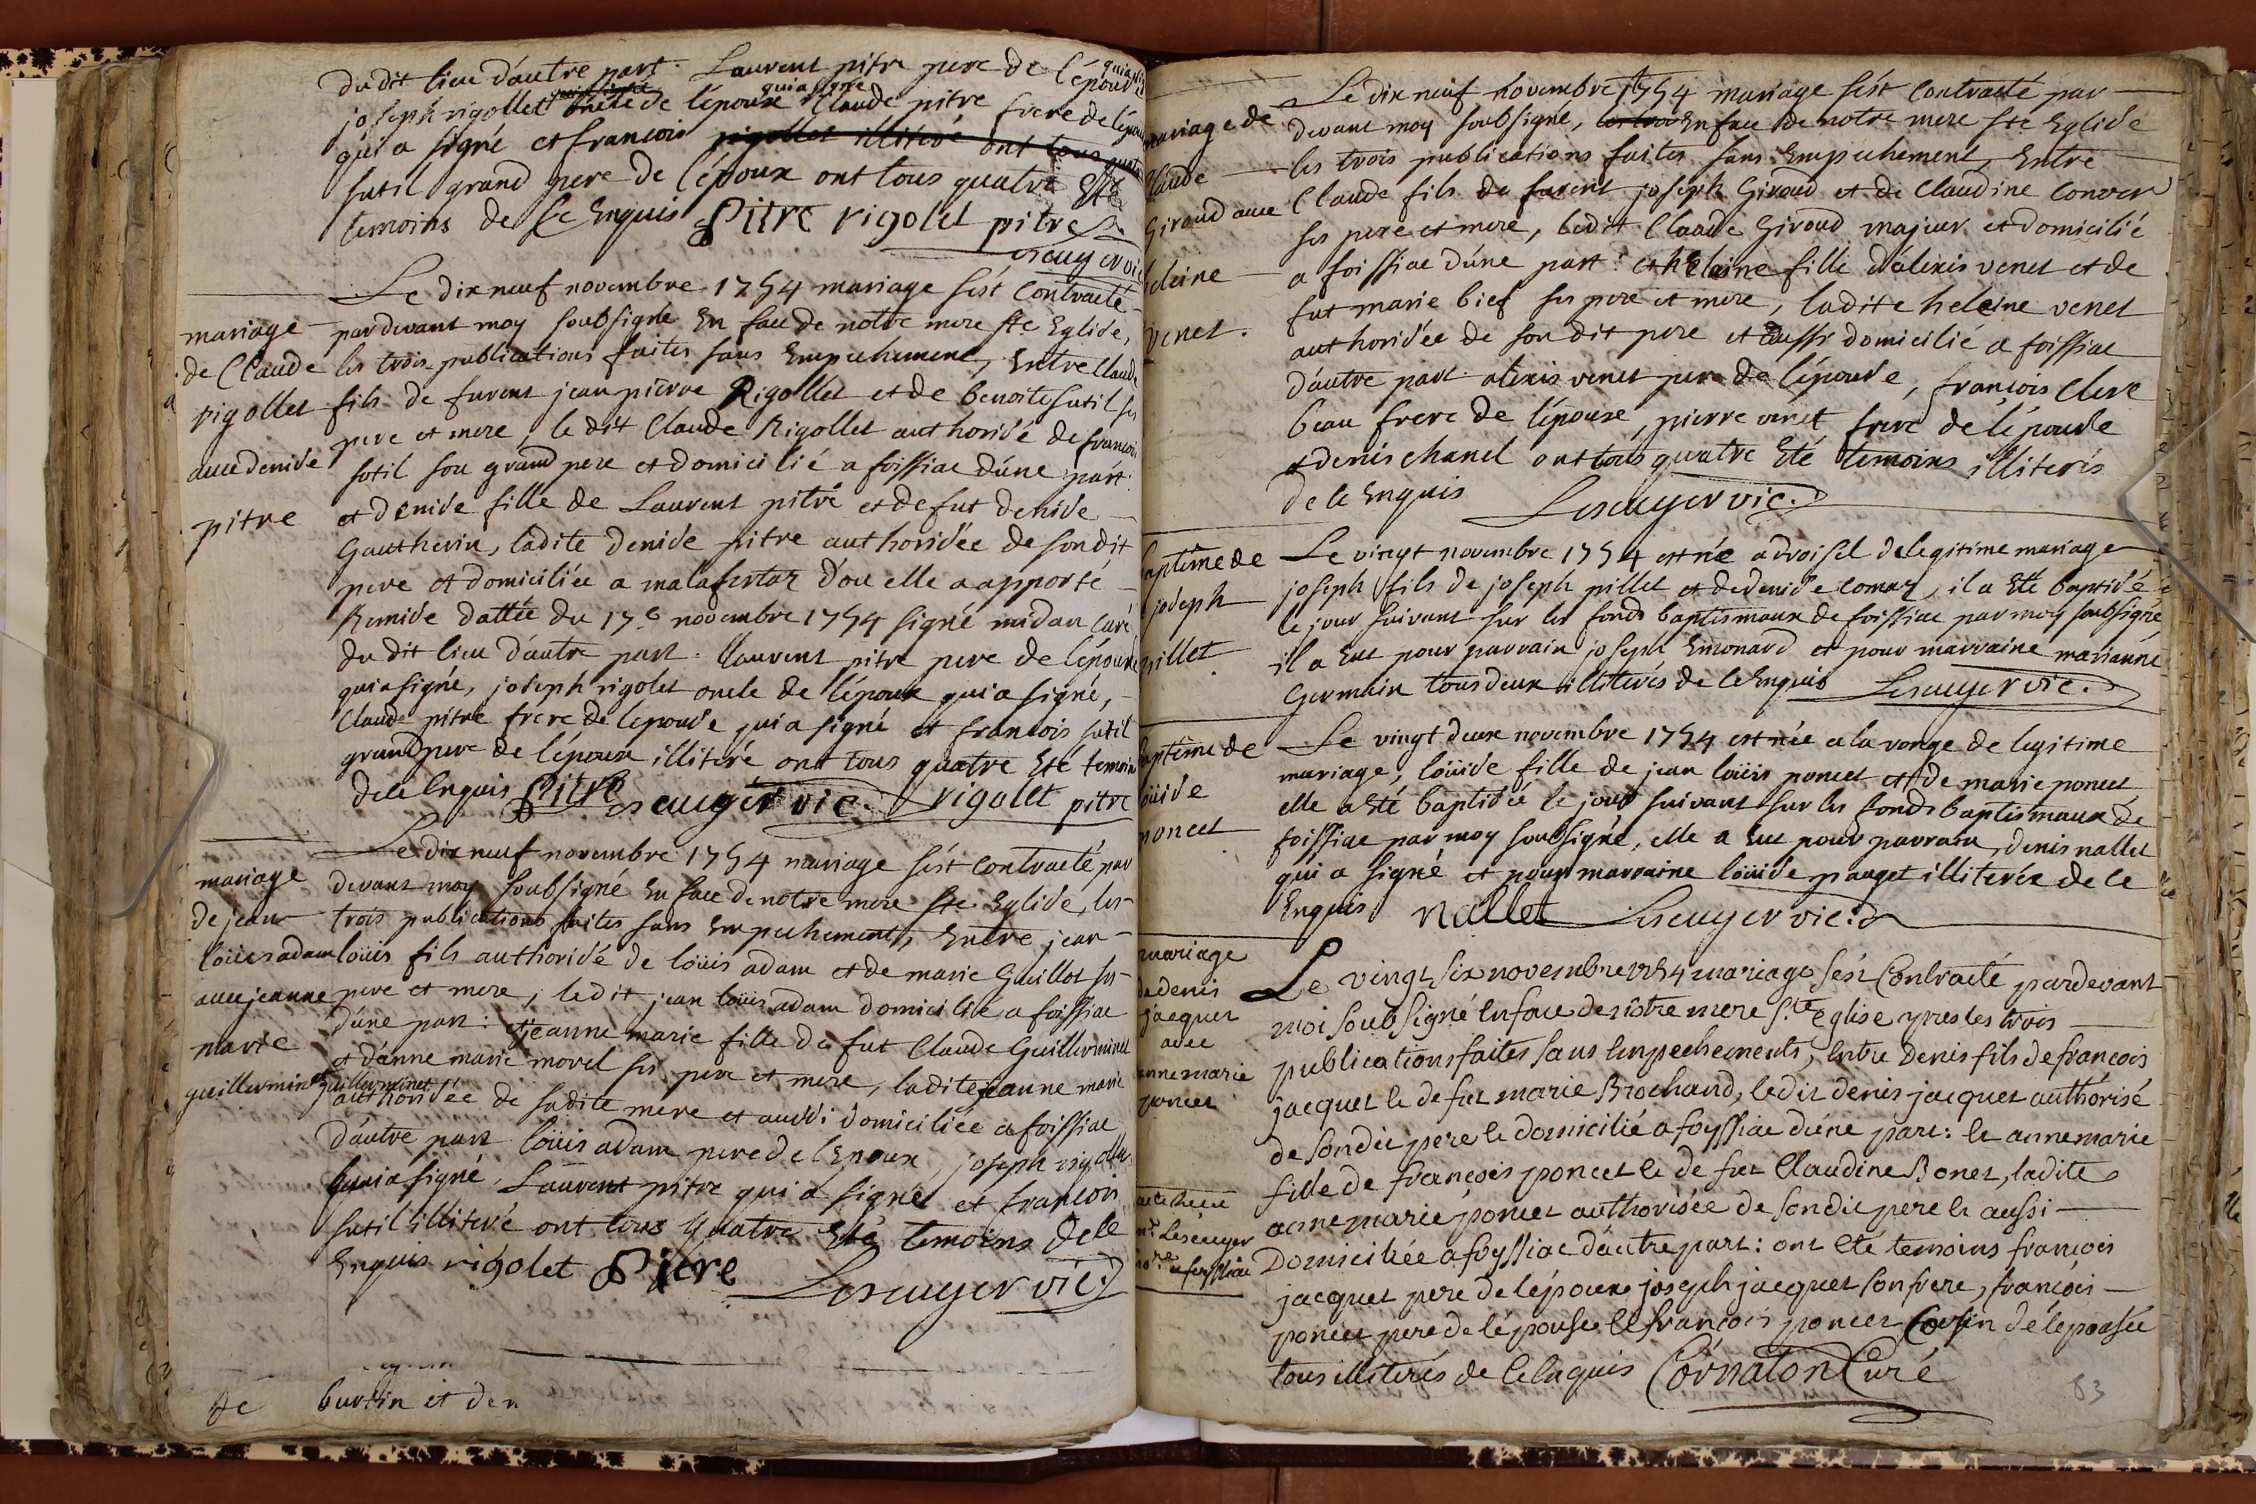 du dit lieu d'autre part. Laurent pitre pere de l'épouse qui a signé
joseph rigollet oncle de l'époux qui a signé Claude pitre frere de l'épouse
qui a signé et francois rigollet illiteré ont tous quatre
sutil grand pere de l'époux ont tous quatre Eté
temoins de Ce Enquis Pitre rigolet pitre
Lescuyer vic
Le dix neuf novembre 1754 mariage s'est Contracté
mariage pardevant moy soubsigné En face de notre mere Ste Eglise,
de Claude les trois publications faites sans Empechement, Entre Claude
rigollet fils de furent jean pierre Rigollet et de benoite sutil ses
pere et mere, le dit Claude Rigollet authorisé de francois
avec denise sutil son grand pere et domicilié a foissiac d'une part.
pitre et denise fille de Laurent pitre et de fut denise
Gautherin, ladite denise pitre authorisée de son dit
pere et domiciliée a malafertaz d'ou elle a apporté
Remise dattée du 17e novembre 1754 signé midan Curé
du dit lieu d'autre part. Laurent pitre pere de l'épouse
qui a signé, joseph rigolet oncle de l'époux qui a signé,
Claude pitre frere de l'epouse qui a signé et francois sutil
grand pere de l'époux illiteré ont tous quatre Eté temoins
de Ce Enquis Pitre Lescuyer vic. rigolet pitre
Le dix neuf novembre 1754 mariage s'est contracté par
mariage devant moy soubsigné En face de notre mere Ste Eglise, les
de jean trois publications faites sans Empechement, Entre jean
loüis adam loüis fils authorisé de loüis adam et de marie Guillot ses
avec jeanne pere et mere, ledit jean loüis adam domicilié a foissiac
marie d'une part: et jeanne marie fille de fut Claude Guillerminet
guillerminet et d'anne marie morel ses pere et mere, ladite jeanne marie
guillerminet authorisée de sadite mere et aussi domiciliée a foissiac
d'autre part loüis adam pere de l'Epoux, joseph rigollet
qui a signé, Laurent pitre qui a signé et francois
sutil illiteré ont tous quatre Eté temoins de Ce
Enquis rigolet Pitre Lescuyer vic.
de burtin et den
Le dix neuf novembre 1754 mariage s'est Contracté par
mariage de devant moy soubsigné, En face de notre mere Ste Eglise
Claude les trois publications faites sans Empechement, Entre
Giroud avec Claude fils de furent joseph Giroud et de Claudine Conver
ses pere et mere, ledit Claude Giroud majeur et domicilié
heleine a foissiac d'une part: et heleine fille d'alexis venet et de
fut marie bief ses pere et mere, ladite heleine venet
venet. authorisée de son dit pere et aussi domicilié a foissiac
d'autre part. alexis venet pere de l'épouse, françois Clerc
beau frere de l'épouse, pierre venet frere de l'épouse
et denis chanel ont tous quatre Eté temoins illiterés
de Ce Enquis Lescuyer vic.
baptême de Le vingt novembre 1754 est né a droisel de legitime mariage
joseph joseph fils de joseph pillet et de denise comaz, il a Eté baptisé
le jour suivant sur les fonds baptismaux de foissiac par moy soubsigné
pillet il a Eut pour parrain joseph Emonard et pour marraine marianne
Germain tous deux illiterés de Ce Enquis Lescuyer vic.
baptême de Le vingt deux novembre 1754 est née a la ronge de legitime
mariage, loüise fille de jean loüis poncet et de marie poncet
loüise elle a Eté baptisée le jour suivant sur les fonds baptismaux de
poncet foissiac par moy soubsigné, elle a Eut pour parrain, denis nallet
qui a signé et pour marraine loüise pauget illiterée de Ce
Enquis nallet Lescuyer vic.
mariage Le vingt six novembre 1754 mariage s'est Contracté pardevant
de denis moi soubsigné En face de nôtre mere Ste Eglise apres les trois
jacquet publications faites sans Empechements, Entre Denis fils de francois
avec jacquet Et de fut marie Brochand, ledit denis jacquet authorisé
anne marie de son dit pere Et domicilié a foyssiac d'une part: Et anne marie
poncet fille de françois poncet Et de fut Claudine Bonet, ladite
anne marie poncet authorisée de son dit pere Et aussi
acte Receu Domiciliée a foyssiac d'autre part: ont Eté temoins françois
mr. Lescuyer jacquet pere de l'époux joseph jacquet son frere, françois
nore a foissiac poncet pere de l'épouse Et françois poncet Cousin de l'épousée
tous illiterés de Ce Enquis Cornaton Curé
83